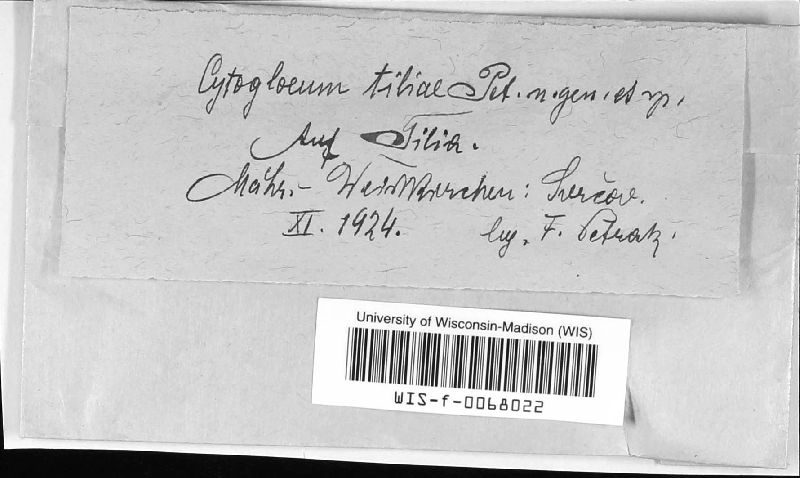 Cytogloeum tiliae Pet. n. gen. et sp.
Auf Tilia.
Mähr.- Weisskirchen: Svrčov.
XI. 1924. leg. F. Petrak.
University of Wisconsin-Madison (WIS)
WIS-f-0068022